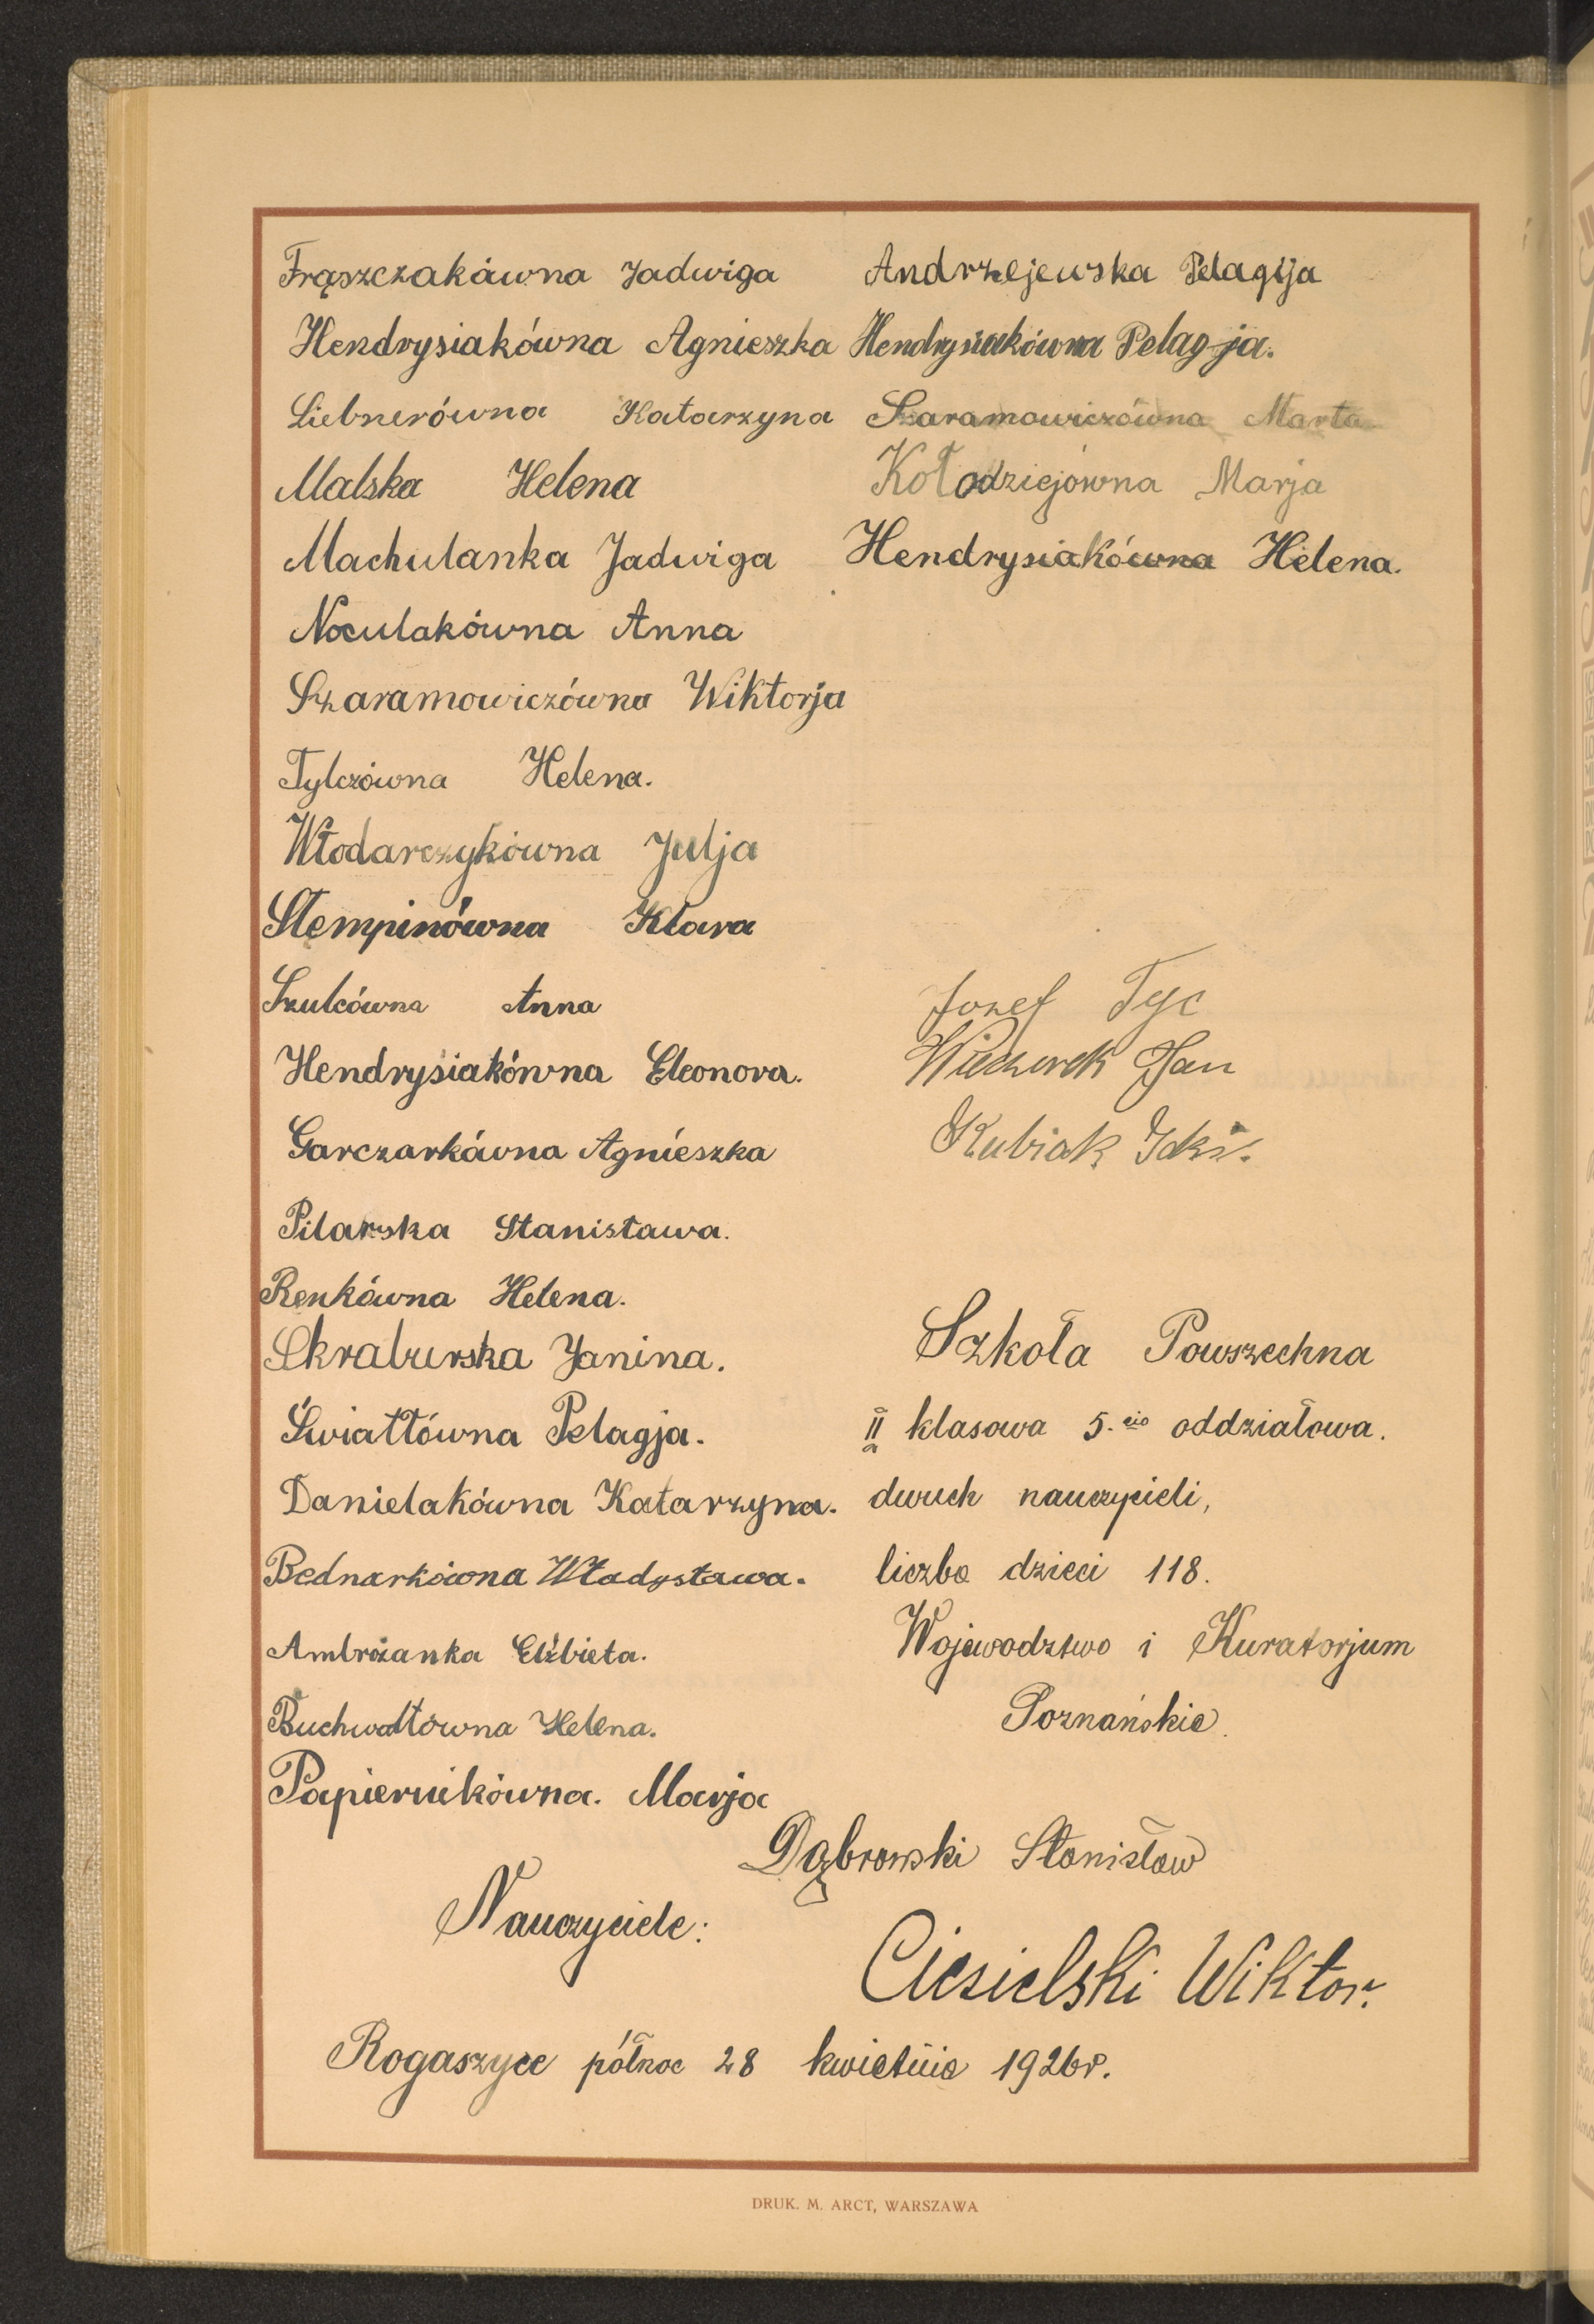 Frąszczakówna Jadwiga
Hendrysiakówna Agnieszka
Liebnerówna Katarzyna
Malska Helena
Machulanka Jadwiga
Noculakówna Anna
Szaramowiczówna Wiktorja
Tylczówna Helena.
Włodarczykówna Julja
Stempinówna Klara
Szulcówna Anna
Hendrysiakówna Eleonora.
Garczarkówna Agnieszka
Pilarska Stanisława.
Renkówna Helena.
Skraburska Janina.
Światłówna Pelagja.
Danielakówna Katarzyna.
Bednarkówna Władysława.
Ambrożanka Elżbieta.
Buchwaltówna Helena.
Papiernikówna. Marja
Andrzejewska Pelagija
Hendrysiakówna Pelagja.
Szaramowiczówna Marta
Kołodziejówna Marja
Hendrysiakówna Helena.
Jozef Tyc
Wieczorek Jan
Kubiak
Szkoła Powszechna
II klasowa 5.cio oddziałowa.
dwuch nauczycieli,
liczba dzieci 118.
Wojewodztwo i Kuratorjum
Poznańskie.
Nauczyciele:
Dąbrowski Stanisław
Ciesielski Wiktor.
Rogaszyce północ 28 kwietnia 1926r.
DRUK. M. ARCT, WARSZAWA